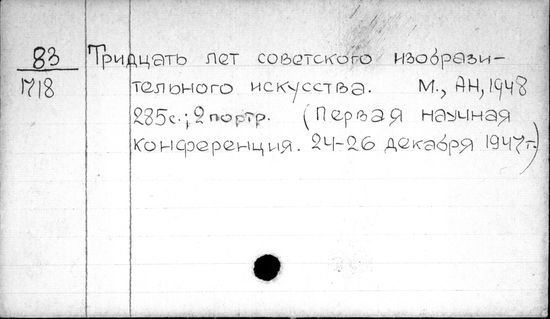 83 Тридцать лет советского изобрази-
1718 тельного искусства. М., АН, 1948
285с.; 2 портр. (Первая научная
конференция. 24-26 декабря 1947г.)